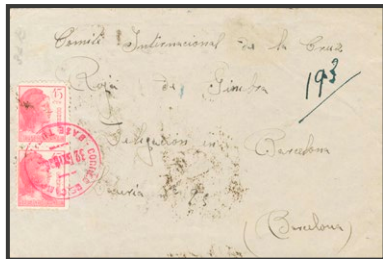 Comité Internacional de la Cruz
Roja de Ginebra
193
Delegation en Barcelona
(Barcelona)
45
CORREOS